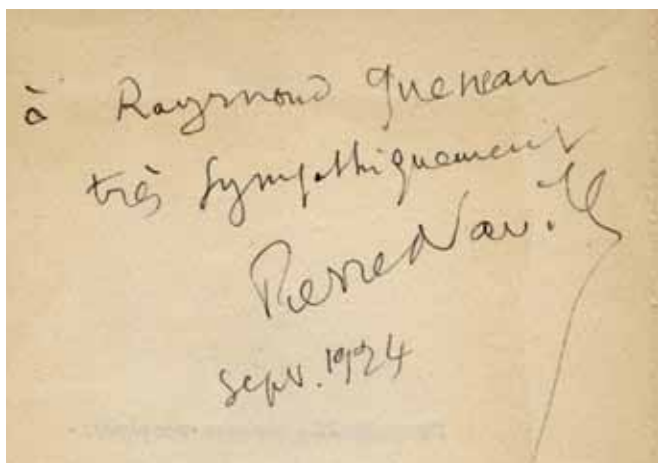 à Raymond Queneau
très sympathiquement
Pierre Naville
sept. 1924